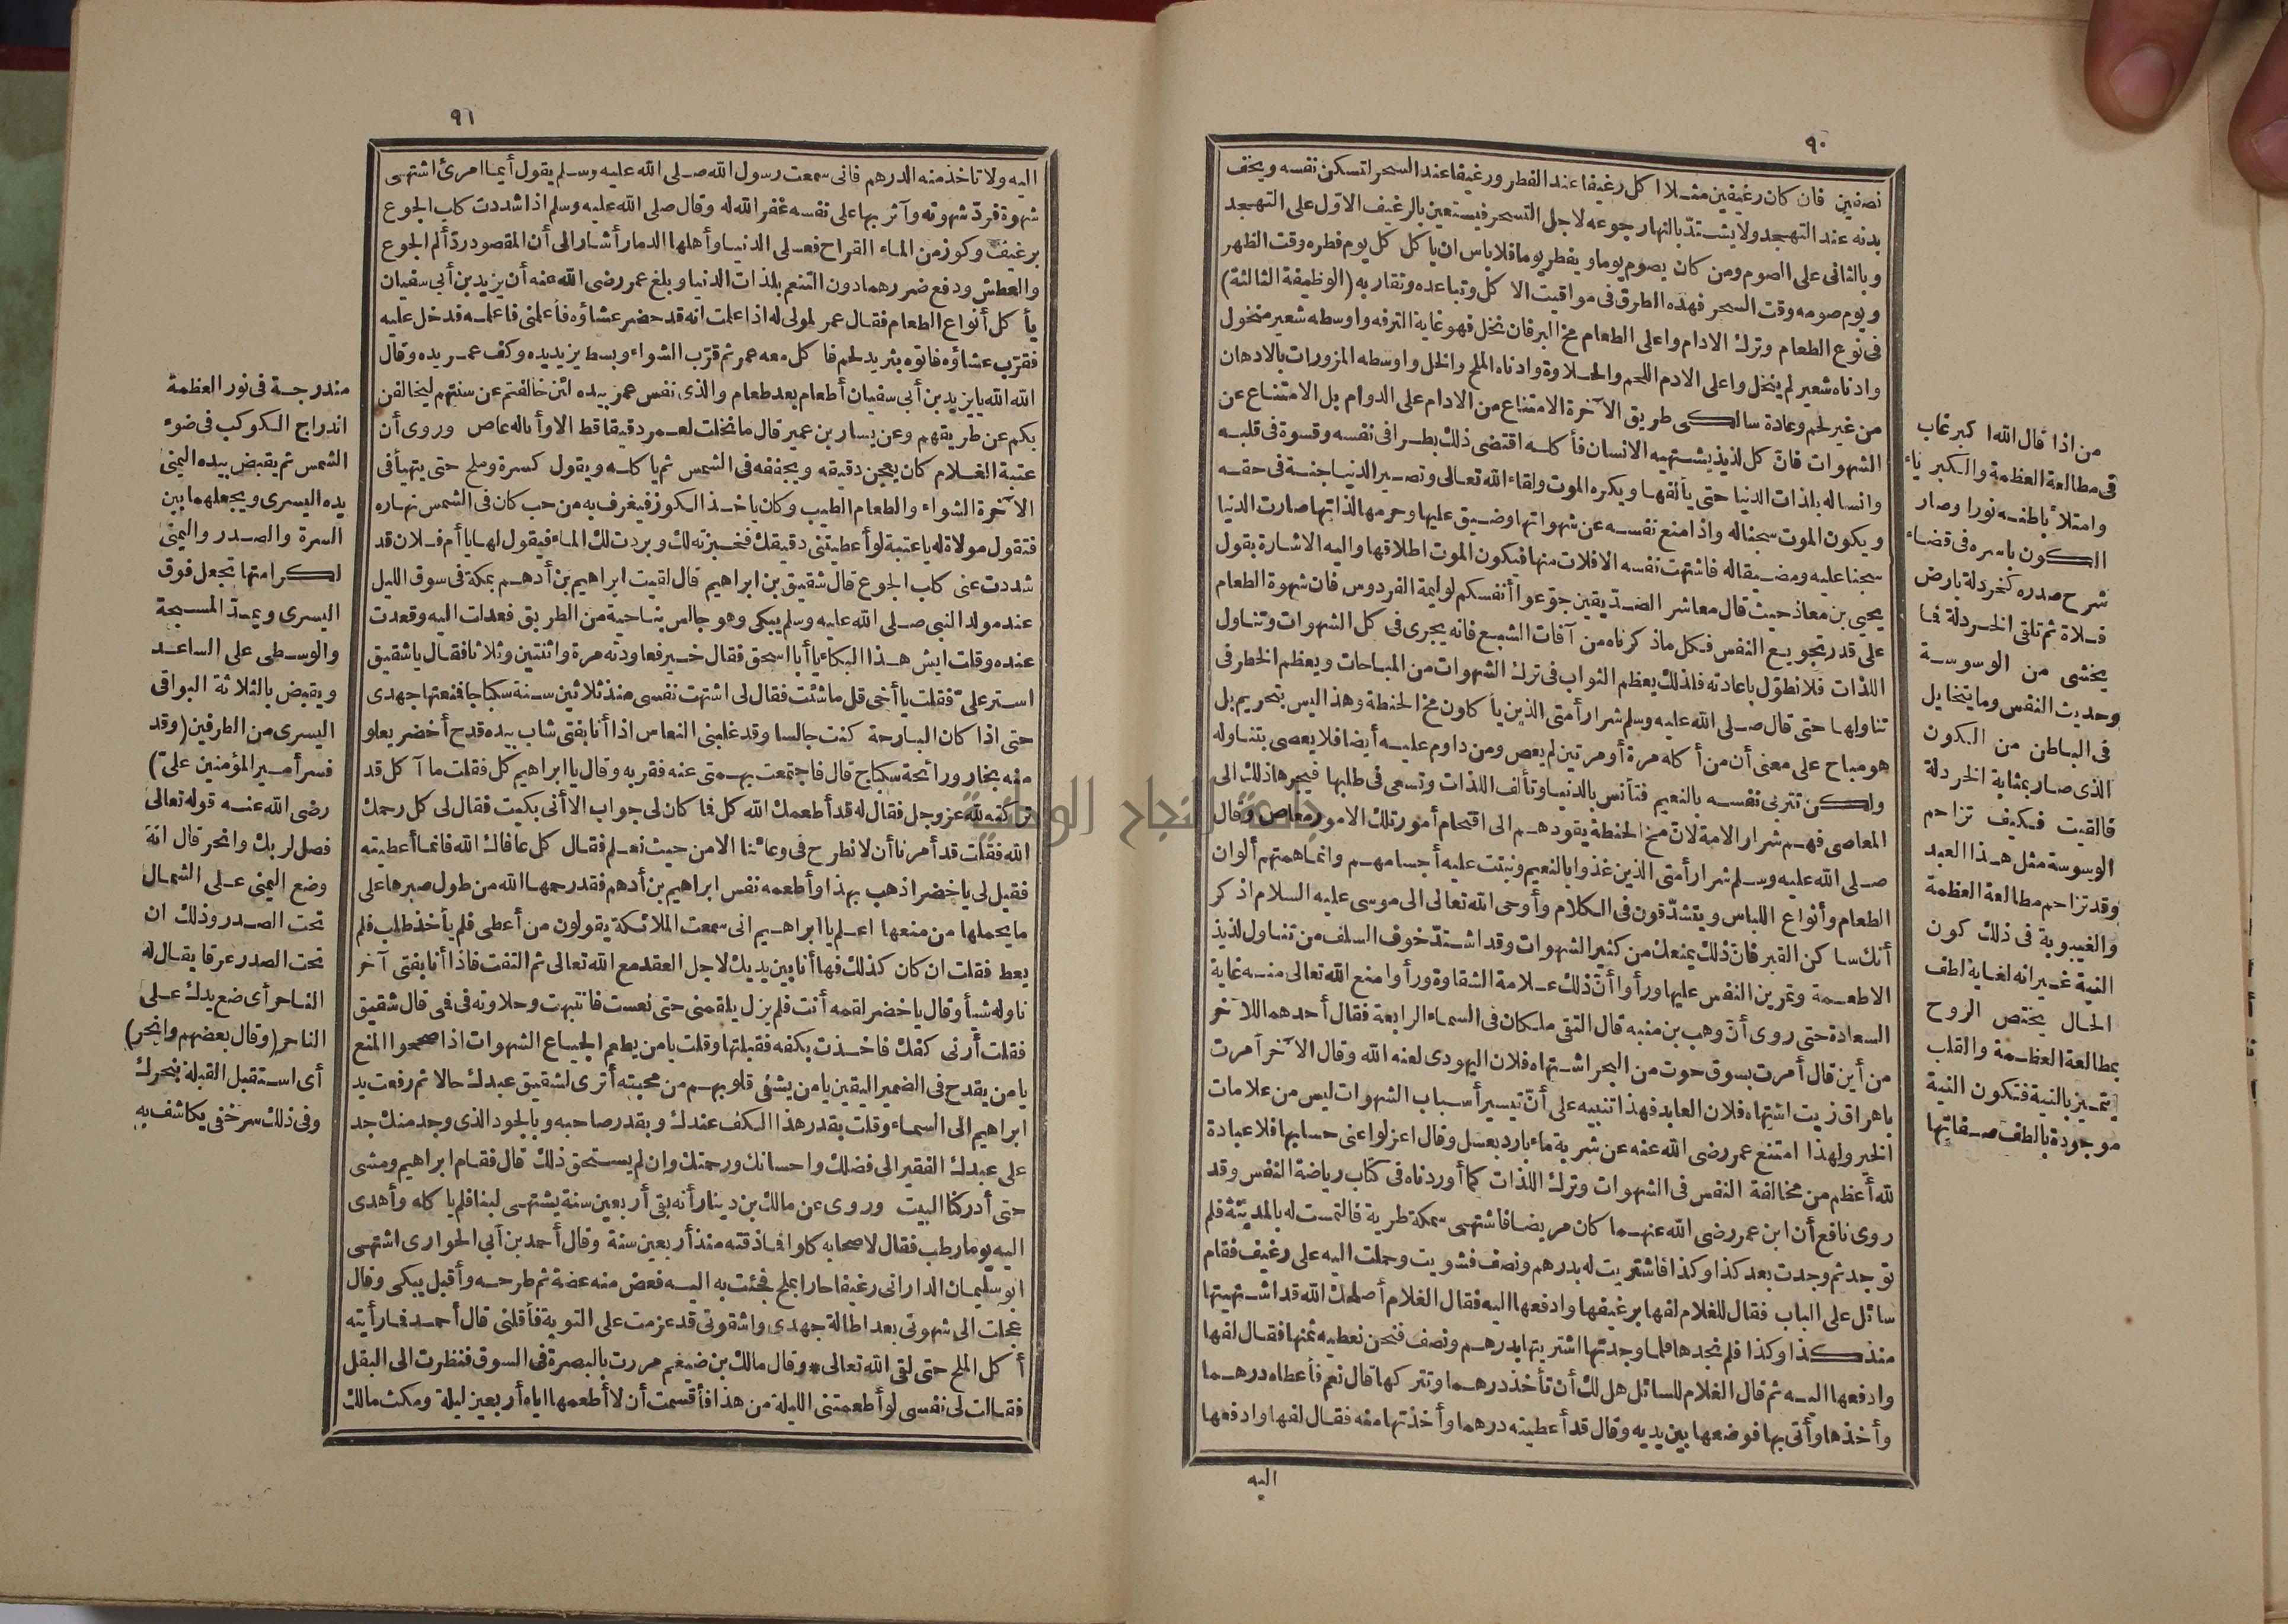 ٩٠
نصفين فان كان رغيفين مثلا اكل رغيفا عند الفطر ورغيفا عند السحر لتسكن نفسه ويخف
بدنه عند التهجد ولا يشتد بالنهار جوعه لاجل التسحر فيستعين بالرغيف الاوّل على التهجد
وبالثانى على الصوم ومن كان يصوم يوما ويفطر يوما فلا باس ان ياكل كل يوم فطره وقت الظهر
ويوم صومه وقت السحر فهذه الطرق فى مواقيت الاكل وتباعده وتقاربه (الوظيفة الثالثة)
فى نوع الطعام وترك الادام واعلى الطعام مخ البر فان نخل فهو غاية الترفه واوسطه شعير منخول
وادناه شعير لم ينخل واعلى الادم اللحم والحلاوة وادناه الملح والخل واوسطه المزورات بالادهان
من غير لحم وعادة سالكى طريق الآخرة الامتناع من الادام على الدوام بل الامتناع عن
الشهوات فانّ كل لذيذ يشتهيه الانسان فأكله اقتضى ذلك بطرا فى نفسه وقسوة فى قلبه
وانسا له بلذات الدنيا حتى يألفها ويكره الموت ولقاء الله تعالى وتصير الدنيا جنة فى حقه
ويكون الموت سجنا له واذا منع نفسه عن شهواتها وضيق عليها وحرمها لذاتها صارت الدنيا
سجنا عليه ومضيقا له فاشتهت نفسه الافلات منها فيكون الموت اطلاقها واليه الاشارة بقول
يحيى بن معاذ حيث قال معاشر الصدّيقين جوّعوا أنفسكم لوليمة الفردوس فان شهوة الطعام
على قدر تجويع النفس فكل ماذكرناه من آفات الشبع فانه يجرى فى كل الشهوات وتناول
اللذات فلا نطوّل باعادته فلذلك يعظم الثواب فى ترك الشهوات من المباحات ويعظم الخطر فى
تناولها حتى قال صلى الله عليه وسلم شرار أمتى الذين يأكلون مخ الحنطة وهذا ليس بتحريم بل
هو مباح على معنى أن من أكله مرة أو مرتين لم يعص ومن داوم عليه أيضا فلا يعصى بتناوله
ولكن تتربى نفسه بالنعيم فتأنس بالدنيا وتألف اللذات وتسعى فى طلبها فيجرها ذلك الى
المعاصى فهم شرار الامة لانّ مخ الحنطة يقودهم الى اقتحام أمور تلك الامور معاص وقال
صلى الله عليه وسلم شرار أمتى الذين غذوا بالنعيم ونبتت عليه أجسامهم وانما همتهم ألوان
الطعام وأنواع اللباس ويتشدّقون فى الكلام وأوحى الله تعالى الى موسى عليه السلام اذكر
أنك ساكن القبر فانّ ذلك يمنعك من كثير الشهوات وقد اشتدّ خوف السلف من تناول لذيذ
الاطعمة وتمرين النفس عليها ورأوا أنّ ذلك علامة الشقاوة ورأوا منع الله تعالى منه غاية
السعادة حتى روى أنّ وهب بن منبه قال التقى ملكان فى السماء الرابعة فقال أحدهما للآخر
من أين قال أمرت بسوق حوت من البحر اشتهاه فلان اليهودى لعنه الله وقال الآخر أمرت
باهراق زيت اشتهاه فلان العابد فهذا تنبيه على أنّ تيسير أسباب الشهوات ليس من علامات
الخير ولهذا امتنع عمر رضى الله عنه عن شربة ماء بارد بعسل وقال اعزلوا عنى حسابها فلا عبادة
لله أعظم من مخالفة النفس فى الشهوات وترك اللذات كما أوردناه فى كتاب رياضة النفس وقد
روى نافع أن ابن عمر رضى الله عنهما كان مريضا فاشتهى سمكة طرية فالتمست له بالمدينة فلم
توجد ثم وجدت بعد كذا وكذا فاشتريت له بدرهم ونصف فشويت وحملت اليه على رغيف فقام
سائل على الباب فقال للغلام لفها برغيفها وادفعها اليه فقال الغلام أصلحك الله قد اشتهيتها
منذ كذا وكذا فلم نجدها فلما وجدتها اشتريتها بدرهم ونصف فنحن نعطيه ثمنها فقال لفها
وادفعها اليه ثم قال الغلام للسائل هل لك أن تأخذ درهما وتتركها قال نعم فأعطاه درهما
وأخذها وأتى بها فوضعها بين يديه وقال قد أعطيته درهما وأخذتها منه فقال لفها وادفعها
اليه
من اذا قال الله اكبر غاب
فى مطالعة العظمة والكبرياء
وامتلأ باطنه نورا وصار
الكون باسره فى قضاء
شرح صدره كخردلة بارض
فلاة ثم تلقى الخردلة فما
يخشى من الوسوسة
وحديث النفس وما يتخايل
فى الباطن من الكون
الذى صار بمثابة الخردلة
فالقيت فكيف تزاحم
الوسوسة مثل هذا العبد
وقد تزاحم مطالعة العظمة
والغيبوبة فى ذلك كون
النية غير انه لغاية لطف
الحال يختص الروح
بمطالعة العظمة والقلب
يتميز بالنية فتكون النية
موجودة بالطف صفاتها
٩١
اليه ولا تاخذ منه الدرهم فانى سمعت رسول الله صلى الله عليه وسلم يقول أيما امرئ اشتهى
شهوة فردّ شهوته وآثر بها على نفسه غفر الله له وقال صلى الله عليه وسلم اذا شددت كلب الجوع
برغيف وكوز من الماء القراح فعلى الدنيا وأهلها الدمار أشار الى أن المقصود ردّ ألم الجوع
والعطش ودفع ضررهما دون التنعم بلذات الدنيا وبلغ عمر رضى الله عنه أن يزيد بن أبى سفيان
يأكل أنواع الطعام فقال عمر لمولى له اذا علمت انه قد حضر عشاؤه فأعلمنى فاعلمه فدخل عليه
فقرّب عشاؤه فاتوه بثريد لحم فاكل معه عمر ثم قرّب الشواء وبسط يزيد يده وكف عمر يده وقال
الله الله يا يزيد بن أبى سفيان أطعام بعد طعام والذى نفس عمر بيده لئن خالفتم عن سنتهم ليخالفن
بكم عن طريقهم وعن يسار بن عمير قال ما نخلت لعمر دقيقا قط الا وأنا له عاص وروى أن
عتبة الغلام كان يعجن دقيقه ويجففه فى الشمس ثم ياكله ويقول كسرة وملح حتى يتهيأ فى
الآخرة الشواء والطعام الطيب وكان ياخذ الكوز فيغرف به من حب كان فى الشمس نهاره
فتقول مولاة له يا عتبة لو أعطيتنى دقيقك فخبزته لك وبردت لك الماء فيقول لها يا أم فلان قد
شددت عنى كلب الجوع قال شقيق بن ابراهيم قال لقيت ابراهيم بن أدهم بمكة فى سوق الليل
عند مولد النبى صلى الله عليه وسلم يبكى وهو جالس بناحية من الطريق فعدلت اليه وقعدت
عنده وقلت ايش هذا البكاء يا أبا اسحق فقال خير فعاودته مرة واثنتين وثلاثا فقال يا شقيق
استر علىّ فقلت يا أخى قل ما شئت فقال لى اشتهت نفسى منذ ثلاثين سنة سكباجا فمنعتها جهدى
حتى اذا كان البارحة كنت جالسا وقد غلبنى النعاس اذا أنا بفتى شاب بيده قدح أخضر يعلو
منه بخار ورائحة سكباج قال فاجتمعت بهمتى عنه فقربه وقال يا ابراهيم كل فقلت ما آكل قد
تركته لله عز وجل فقال له قد أطعمك الله كل فما كان لى جواب الا أنى بكيت فقال لى كل رحمك
الله فقلت قد أمرنا أن لا نطرح فى وعائنا الا من حيث نعلم فقال كل عافاك الله فانما أعطيته
فقيل لى يا خضر اذهب بهذا وأطعمه نفس ابراهيم بن أدهم فقد رحمها الله من طول صبرها على
ما يحملها من منعها اعلم يا ابراهيم انى سمعت الملائكة يقولون من أعطى فلم يأخذ طلب فلم
يعط فقلت ان كان كذلك فها أنا بين يديك لاجل العقد مع الله تعالى ثم التفت فاذا أنا بفتى آخر
ناوله شيأ وقال يا خضر لقمه أنت فلم يزل يلقمنى حتى نعست فانتبهت وحلاوته فى فمى قال شقيق
فقلت أرنى كفك فاخذت بكفه فقبلتها وقلت يا من يطعم الجياع الشهوات اذا صححوا المنع
يا من يقدح فى الضمير اليقين يا من يشفى قلوبهم من محبته أترى لشقيق عبدك حالا ثم رفعت يد
ابراهيم الى السماء وقلت بقدر هذا الكف عندك وبقدر صاحبه وبالجود الذى وجد منك جد
على عبدك الفقير الى فضلك واحسانك ورحمتك وان لم يستحق ذلك قال فقام ابراهيم ومشى
حتى أدركنا البيت وروى عن مالك بن دينار أنه بقى أربعين سنة يشتهى لبنا فلم ياكله وأهدى
اليه يوما رطب فقال لاصحابه كلوا فما ذقته منذ أربعين سنة وقال أحمد بن أبى الحوارى اشتهى
ابو سليمان الدارانى رغيفا حارا بملح فجئت به اليه فعض منه عضة ثم طرحه وأقبل يبكى وقال
عجلت الى شهوتى بعد اطالة جهدى واشقوتى قد عزمت على التوبة فأقلنى قال أحمد فما رأيته
أكل الملح حتى لقى الله تعالى * وقال مالك بن ضيغم مررت بالبصرة فى السوق فنظرت الى البقل
فقالت لى نفسى لو أطعمتنى الليلة من هذا فأقسمت أن لا أطعمها اياه أربعين ليلة ومكث مالك
مندرجة فى نور العظمة
اندراج الكوكب فى ضوء
الشمس ثم يقبض بيده اليمنى
يده اليسرى ويجعلهما بين
السرة والصدر واليمنى
لكرامتها تجعل فوق
اليسرى ويمدّ المسبحة
والوسطى على الساعد
ويقبض بالثلاثة البواقى
اليسرى من الطرفين (وقد
فسر أمير المؤمنين علىّ)
رضى الله عنه قوله تعالى
فصل لربك وانحر قال انه
وضع اليمنى على الشمال
تحت الصدر وذلك ان
تحت الصدر عرقا يقال له
الناحر أى ضع يدك على
الناحر (وقال بعضهم وانحر)
أى استقبل القبلة بنحرك
وفى ذلك سر خفى يكاشف به
جامعة النجاح الوطنية